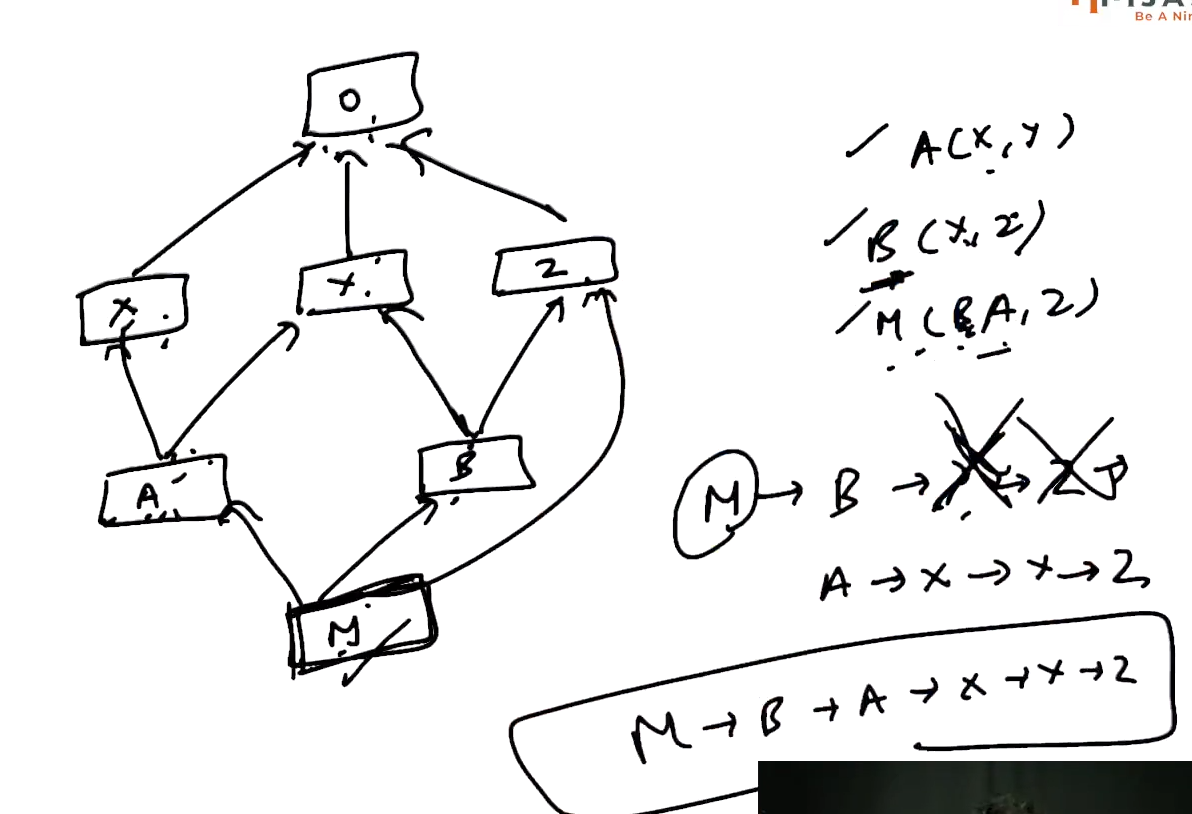 Be A Nin
O
X Y Z
A B
M
A(X,Y)
B(Y,Z)
M(B,A,Z)
M → B → Y → Z →
A → X → Y → Z
M → B → A → X → Y → Z